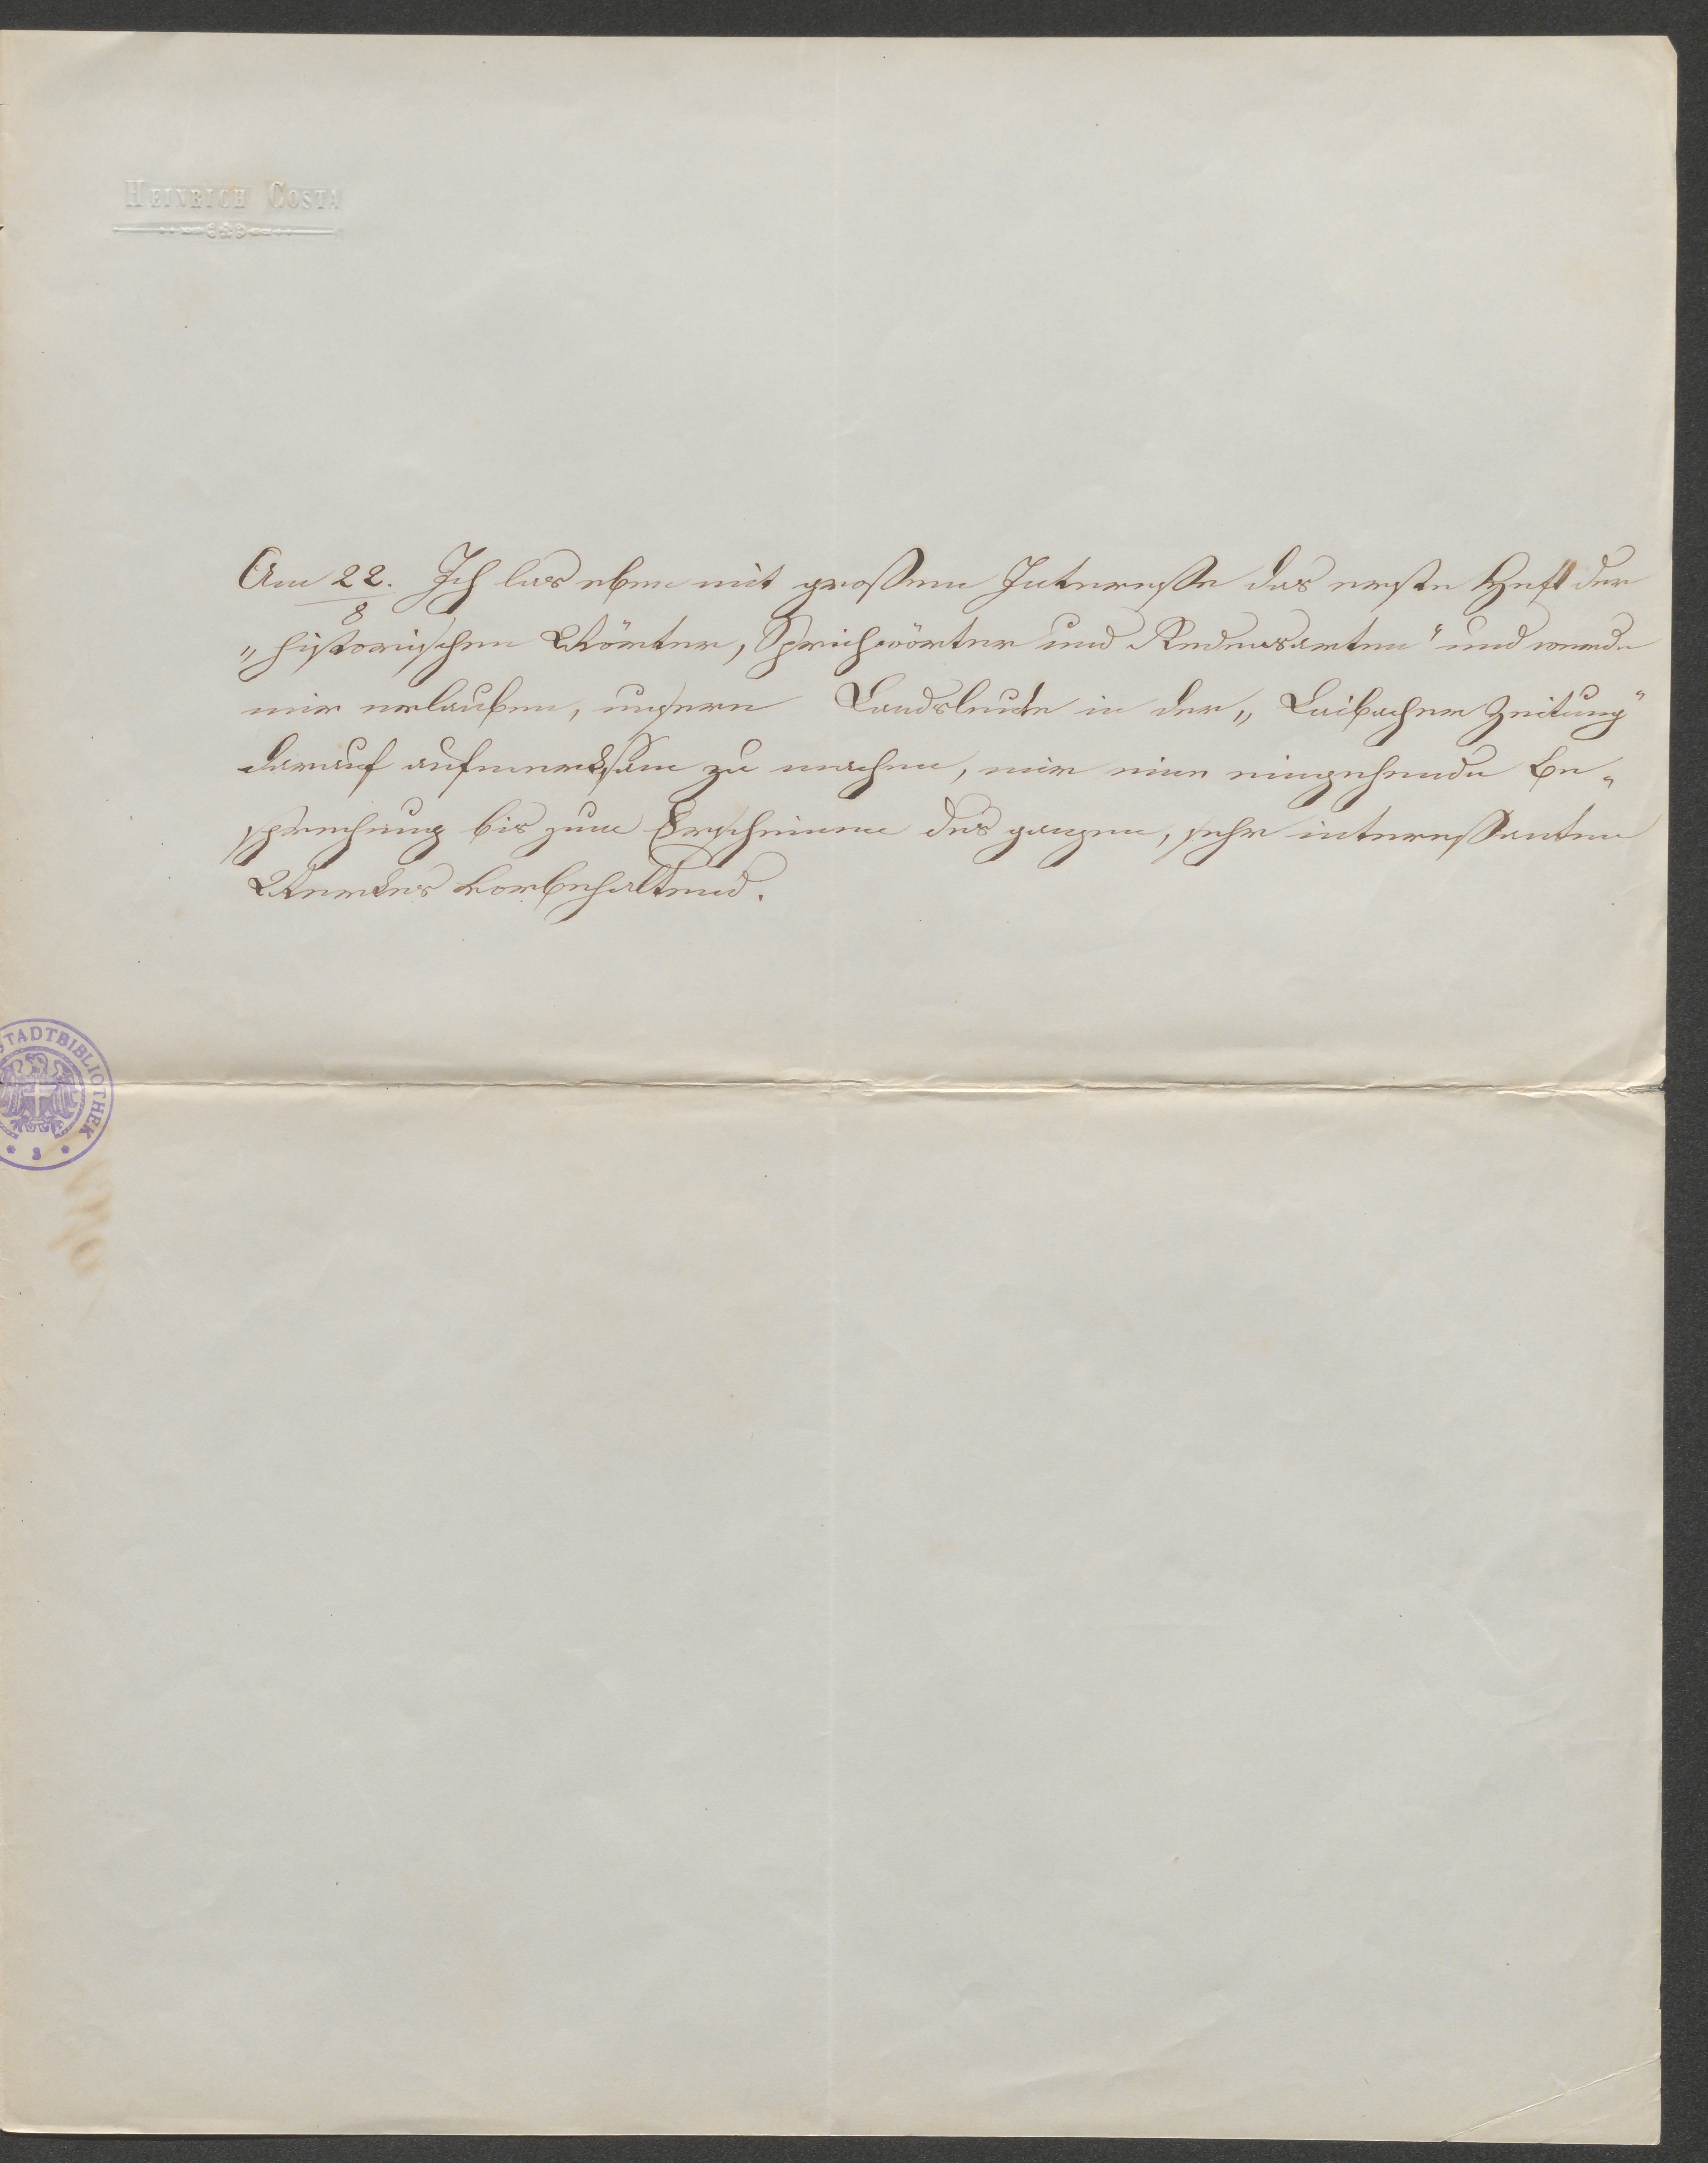 HEINRICH COSTA
Am 22./8 Ich las eben mit großem Interesse das erste Heft der
„historischen Wörter, Sprichwörter und Redensarten" und werde
mir erlauben, unsere Landsleute in der „Laibacher Zeitung"
darauf aufmerksam zu machen, mir eine eingehende Be-
sprechung bis zum Erscheinen des ganzen, sehr interessanten
Werkes vorbehaltend.
STADTBIBLIOTHEK